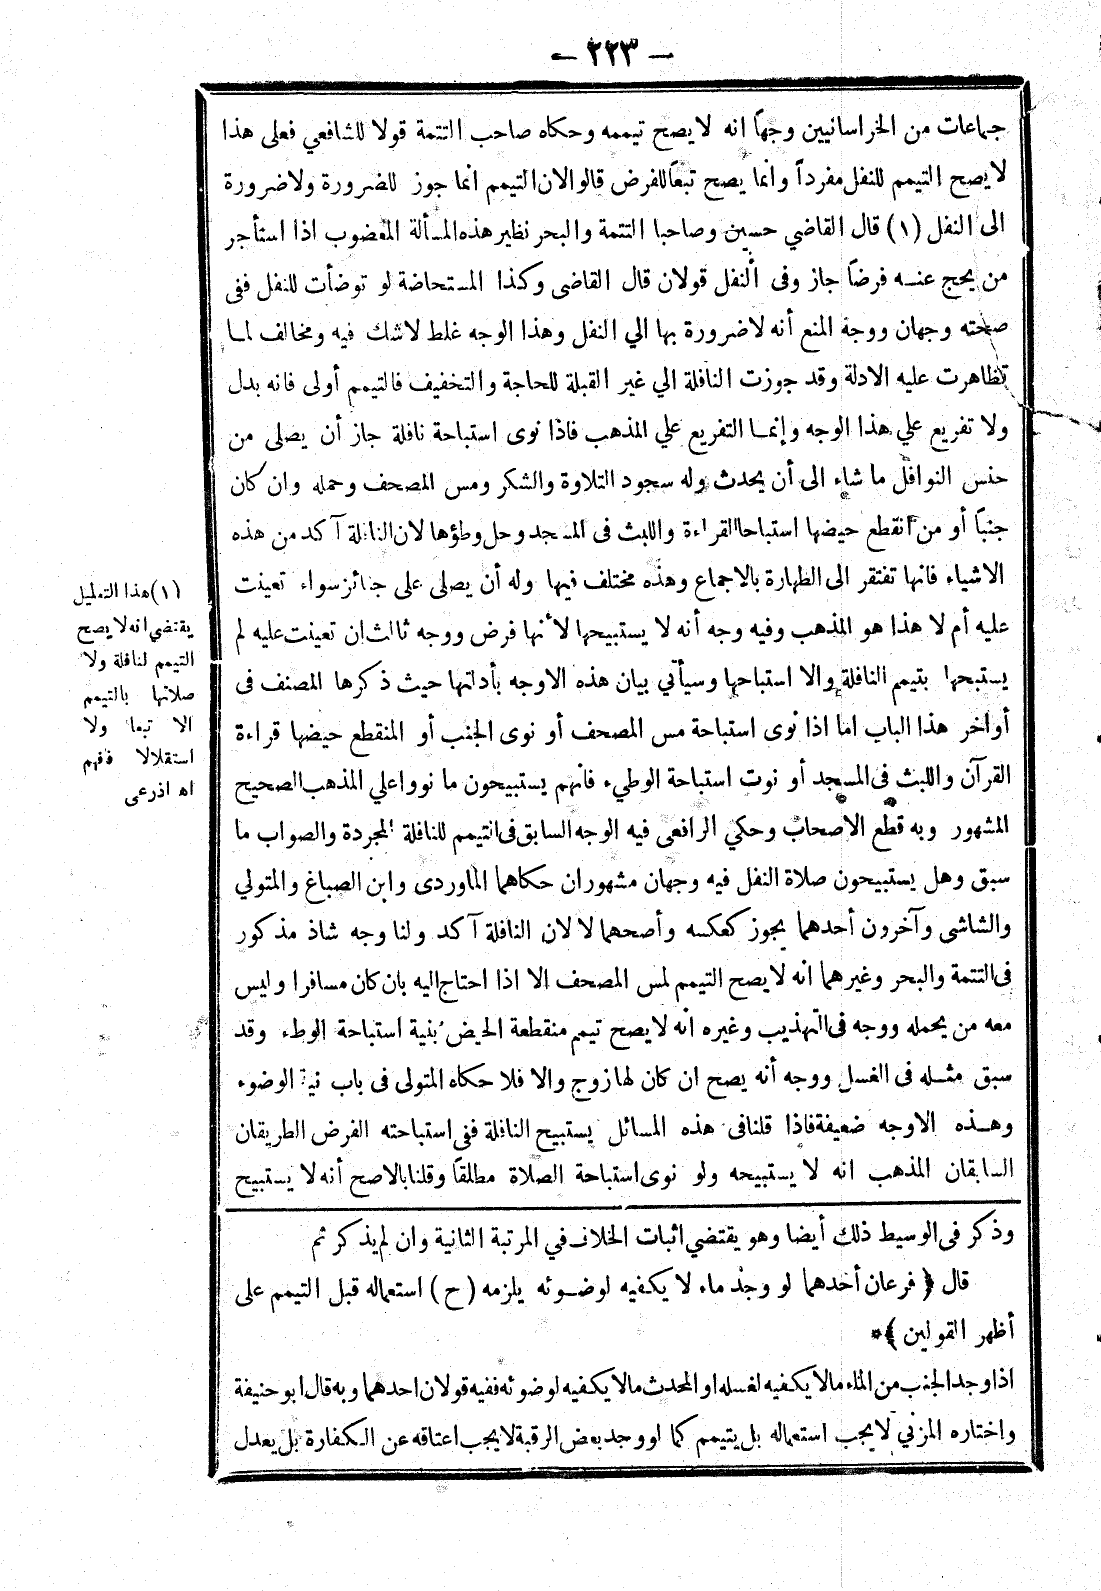 — ٢٢٣ —
جماعات من الخراسانيين وجهاً انه لا يصح تيممه وحكاه صاحب التتمة قولا للشافعي فعلى هذا
لا يصح التيمم للنفل مفرداً وانما يصح تبعاً للفرض قالوا لان التيمم انما جوز للضرورة ولا ضرورة
الى النفل (١) قال القاضي حسين وصاحبا التتمة والبحر نظير هذه المسألة المعضوب اذا استأجر
من يحج عنه فرضاً جاز وفى النفل قولان قال القاضى وكذا المستحاضة لو توضأت للنفل ففى
صحته وجهان ووجه المنع أنه لا ضرورة بها الي النفل وهذا الوجه غلط لا شك فيه ومخالف لما
تظاهرت عليه الادلة وقد جوزت النافلة الي غير القبلة للحاجة والتخفيف فالتيمم أولى فانه بدل
ولا تفريع علي هذا الوجه وإنما التفريع علي المذهب فاذا نوى استباحة نافلة جاز أن يصلى من
جنس النوافل ما شاء الى أن يحدث وله سجود التلاوة والشكر ومس المصحف وحمله وان كان
جنباً أو من انقطع حيضها استباحا القراءة واللبث فى المسجد وحل وطؤها لان النافلة آكد من هذه
الاشياء فانها تفتقر الى الطهارة بالاجماع وهذه مختلف فيها وله أن يصلى على جنائز سواء تعينت
عليه أم لا هذا هو المذهب وفيه وجه أنه لا يستبيحها لأنها فرض ووجه ثالث إن تعينت عليه لم
يستبحها بتيمم النافلة والا استباحها وسيأتي بيان هذه الاوجه بأدلتها حيث ذكرها المصنف فى
أواخر هذا الباب اما اذا نوى استباحة مس المصحف أو نوى الجنب أو المنقطع حيضها قراءة
القرآن واللبث فى المسجد أو نوت استباحة الوطيء فانهم يستبيحون ما نووا علي المذهب الصحيح
المشهور وبه قطع الاصحاب وحكي الرافعى فيه الوجه السابق فى التيمم للنافلة المجردة والصواب ما
سبق وهل يستبيحون صلاة النفل فيه وجهان مشهوران حكاهما الماوردى وابن الصباغ والمتولي
والشاشى وآخرون أحدهما يجوز كعكسه وأصحهما لا لان النافلة آكد ولنا وجه شاذ مذكور
فى التتمة والبحر وغيرهما انه لا يصح التيمم لمس المصحف الا اذا احتاج اليه بان كان مسافرا وليس
معه من يحمله ووجه فى التهذيب وغيره أنه لا يصح تيمم منقطعة الحيض بنية استباحة الوطء وقد
سبق مثله فى الغسل ووجه أنه يصح ان كان لها زوج والا فلا حكاه المتولى فى باب نية الوضوء
وهذه الاوجه ضعيفة فاذا قلنا فى هذه المسائل يستبيح النافلة ففى استباحته الفرض الطريقان
السابقان المذهب انه لا يستبيحه ولو نوى استباحة الصلاة مطلقاً وقلنا بالاصح أنه لا يستبيح
(١) هذا التعليل
يقتضي انه لا يصح
التيمم لنافلة ولا
صلاتها بالتيمم
الا تبعا ولا
استقلالا فافهم
اه اذرعى
وذكر فى الوسيط ذلك أيضا وهو يقتضي اثبات الخلاف في المرتبة الثانية وان لم يذكر ثم
قال ﴿ فرعان أحدهما لو وجد ماء لا يكفيه لوضوئه يلزمه (ح) استعماله قبل التيمم على
أظهر القولين ﴾*
اذا وجد الجنب من الماء مالا يكفيه لغسله او المحدث مالا يكفيه لوضوئه ففيه قولان احدهما وبه قال ابو حنيفة
واختاره المزني لا يجب استعماله بل يتيمم كما لو وجد بعض الرقبة لا يجب اعتاقه عن الكفارة بل يعدل